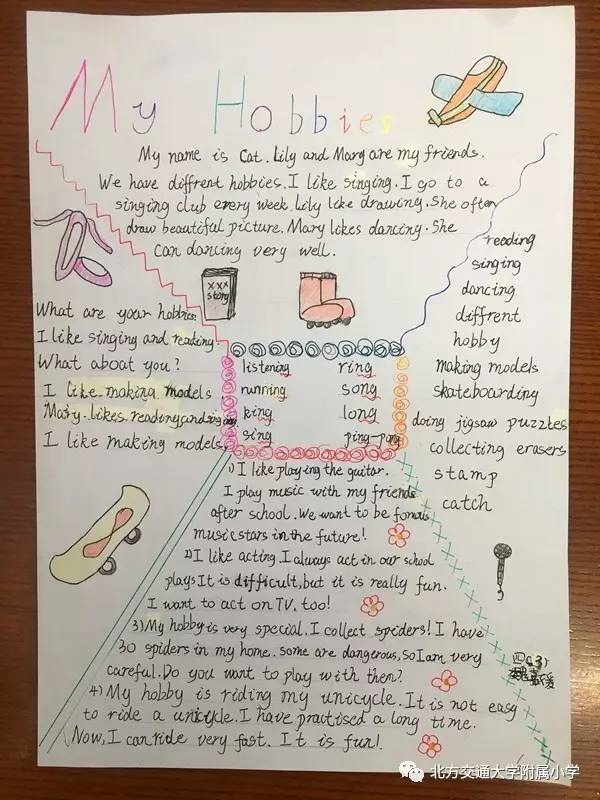 My Hobbies
My name is Cat. Lily and Mary are my friends.
We have diffrent hobbies. I like singing. I go to a
singing club every week. Lily like drawing. She often
draw beautiful picture. Mary likes dancing. She
can dancing very well.
XXX
story
What are your hobbies
I like singing and reading
What about you?
I like making models.
Mary likes reading and singing
I like making models.
listening ring
running song
king long
sing ping-pang
reading
singing
dancing
diffrent
hobby
making models
skateboarding
doing jigsaw puzzles
collecting erasers
stamp
catch
1) I like playing the guitar.
I play music with my friends
after school. We want to be famous
music stars in the future!
2) I like acting. I always act in our school
plays It is difficult, but it is really fun.
I want to act on TV, too!
3) My hobby is very special. I collect spiders! I have
30 spiders in my home. some are dangerous, so I am very
careful. Do you want to play with them?
4) My hobby is riding my unicycle. It is not easy
to ride a unicycle. I have practised a long time.
Now, I can ride very fast. It is fun!
四(3)
北方交通大学附属小学